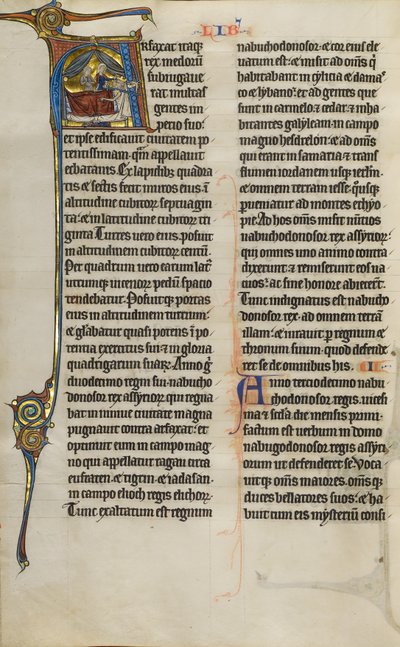 LIB'
Arfaxat itaqȝ
rex medorū
subiugaue
rat multas
gentes im
perio suo:
et ipse edificauit ciuitatem po
tentissimam. quā appellauit
ecbatanis. Ex lapidibȝ quadra
tis et sectis fecit muros eius ī
altitudine cubitorꝝ septuagin
ta: et in latitudine cubitorꝝ tri
ginta. Turres vero eius posuit
in altitudinem cubitorꝝ centū.
Per quadrum vero earum lat'
utrumqȝ uicenorꝝ pedum spacio
tendebatur. Posuitqȝ portas
eius in altitudinem turrium:
et gl'abatur quasi potens ī po
tentia exercitus sui: et in gloria
quadrigarum suarꝝ. Anno gͥ
duodecimo regni sui nabucho
donosor rex assyriorꝝ qui regna
bat in niniue ciuitate magna
pugnauit contra arfaxat: et
optinuit eum in campo mag
no qui appellatur ragau circa
eufraten et tigrin et iadasan
in campo elioch regis elichorꝝ.
Tunc exaltatum est regnum
nabuchodonosor. et cor eius ele
uatum est: et misit ad om̄s q̄
habitabant in cylicia et dama
co et lybano: et ad gentes que
sunt in carmelo et cedar et inha
bitantes galyleam in campo
magno hesdrelon: et ad om̄s
qui erant in samaria et trans
flumen iordanem usqȝ ierlm̄.
et omnem terram iesse. qusqȝ
ꝑueniatur ad montes ethyo
pie. Ad hos om̄s misit nūcios
nabuchodonosor rex assyriorꝝ
qui omnes uno animo contra
dixerunt: et remiserunt eos ua
cuos: ac sine honore abiecerūt.
Tunc indignatus est nabucho
donosor rex ad omnem terrā
illam: et iurauit ꝑ regnum et
thronum suum. quod defende
ret se de omnibus his. II
Anno terciodecimo nabu
chodonosor regis. uicesi
ma et sc̄da die mensis primi.
factum est uerbum in domo
nabugodonosor regis assyri
orum ut defenderet se. Voca
uitqȝ om̄s maiores. om̄sqȝ
duces bellatores suos: et ha
buit cum eis mysterium consi